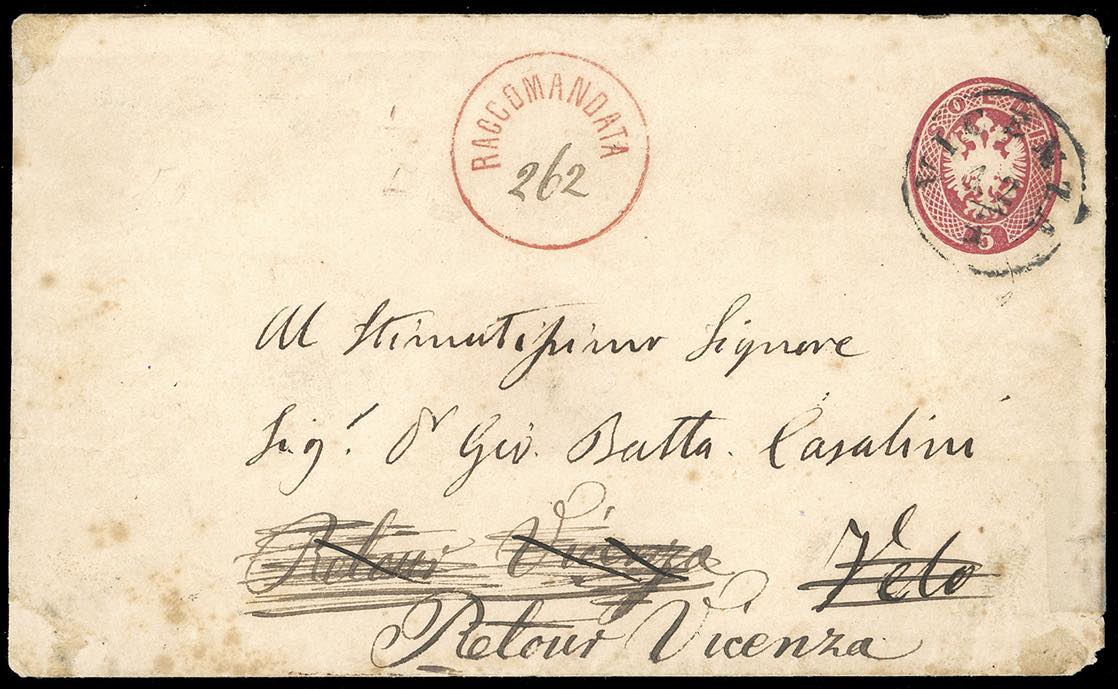 RACCOMANDATA
262
SOLDI
VICENZA
5
Al Stimatissimo Signore
Sigr. Dr Gio. Batta. Casalini
Retour Vicenza Velo
Retour Vicenza